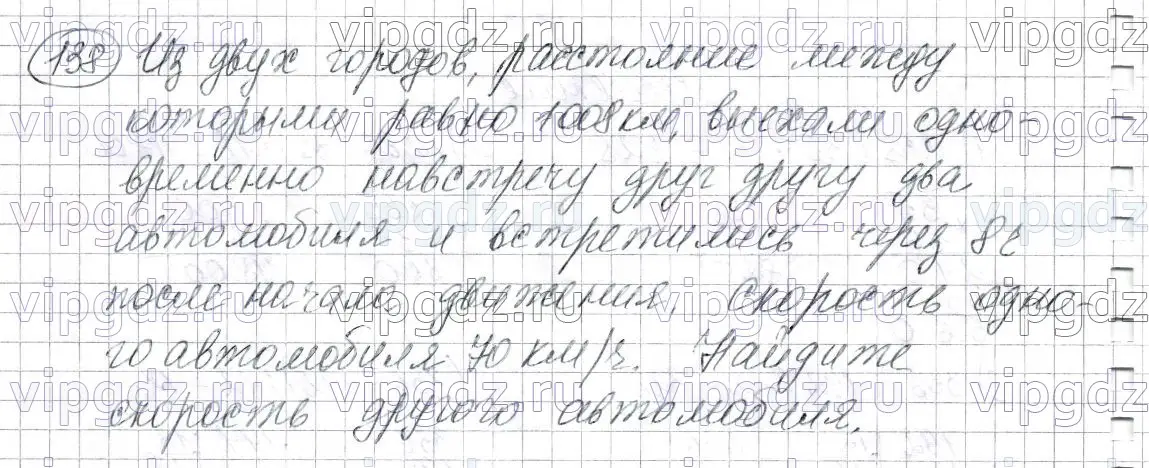 138 Из двух городов, расстояние между
которыми равно 1008 км, выехали одно-
временно навстречу друг другу два
автомобиля и встретились через 8 ч
после начала движения. Скорость одно-
го автомобиля 70 км/ч. Найдите
скорость другого автомобиля.
vipgdz.ru